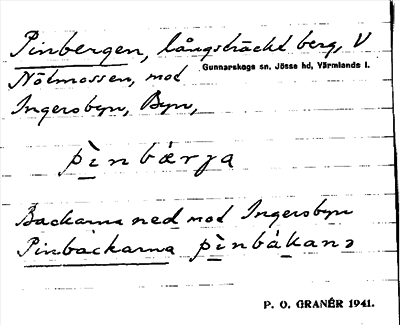 Pinbergen, långsträckt berg, V
Gunnarskogs sn, Jösse hd, Värmlands l.
Nötmossen, mot
Ingersbyn, Byn,
pìnbærja
Backarna ned mot Ingersbyn
Pinbackarna pìnbákanə
P. O. GRANÉR 1941.